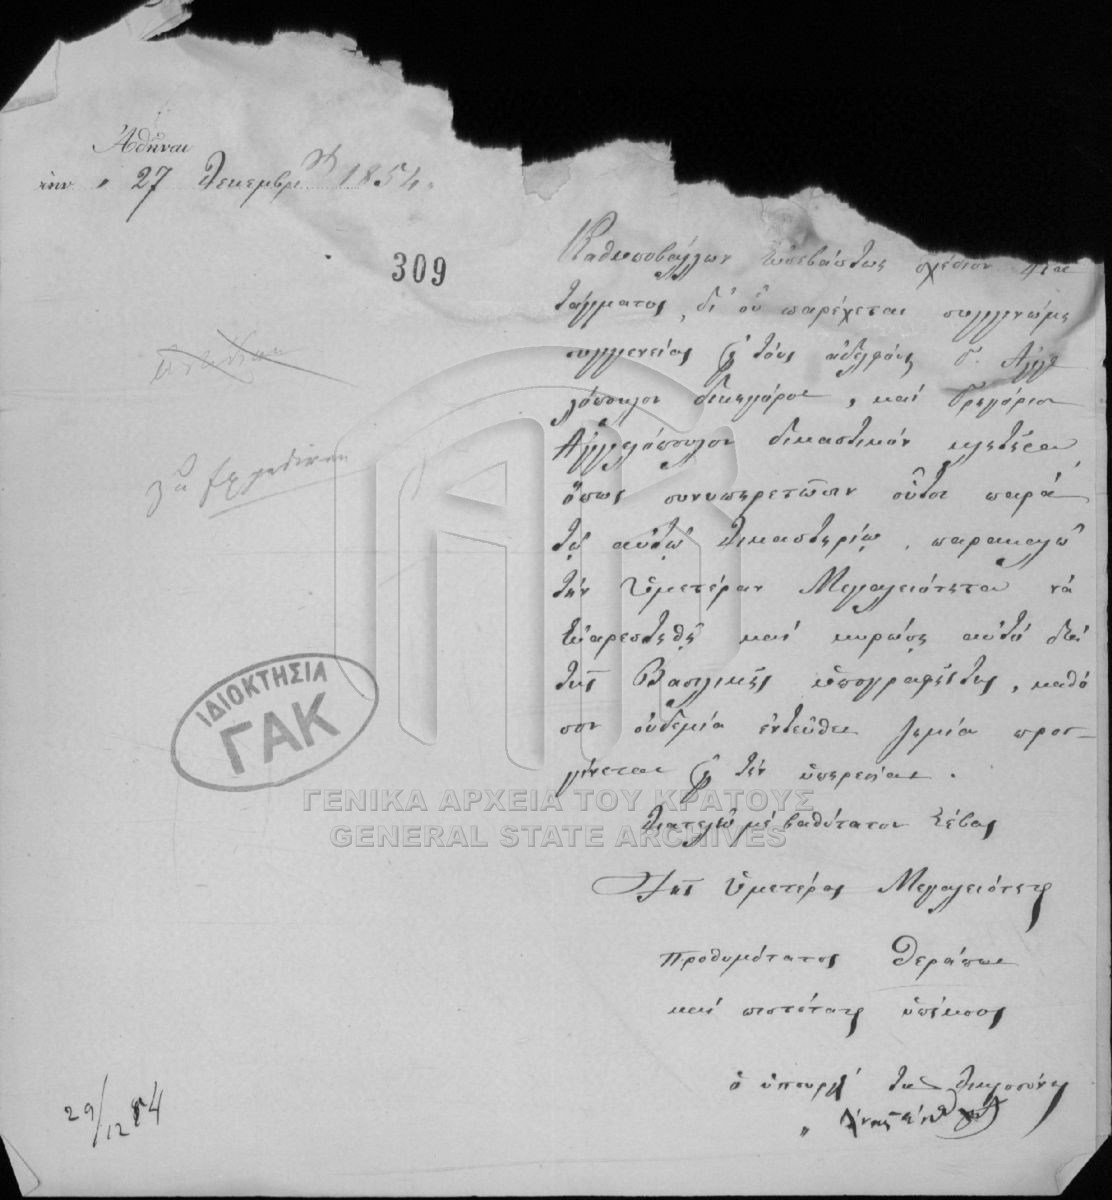 Ἀθῆναι
τὴν " 27 Δεκεμβρίου 1854.
309
Καθυποβάλλων εὐσεβάστως σχέδιον Δια
τάγματος, δι' οὗ παρέχεται συγγνώμη
συγγενείας εἰς τοὺς ἀδελφοὺς Γ. Ἀγγε
λόπουλον δικηγόρον, καὶ Γρηγόριον
Ἀγγελόπουλον δικαστικὸν κλητῆρα
ὅπως συνυπηρετῶσιν οὗτοι παρὰ
τῷ αὐτῷ δικαστηρίῳ, παρακαλῶ
τὴν Ὑμετέραν Μεγαλειότητα νὰ
εὐαρεστηθῇ καὶ κυρώσῃ αὐτὸ διὰ
τῆς Βασιλικῆς ὑπογραφῆς της, καθό
σον οὐδεμία ἐντεῦθεν ζημία προσ-
γίνεται εἰς τὴν ὑπηρεσίαν.
Διατελῶ μὲ βαθύτατον σέβας
Τῆς Ὑμετέρας Μεγαλειότητος
προθυμότατος θεράπων
καὶ πιστότατος ὑπήκοος
ὁ ὑπουργὸς τῆς Δικαιοσύνης
ΙΔΙΟΚΤΗΣΙΑ
ΓΑΚ
ΓΕΝΙΚΑ ΑΡΧΕΙΑ ΤΟΥ ΚΡΑΤΟΥΣ
GENERAL STATE ARCHIVES
29/12 54